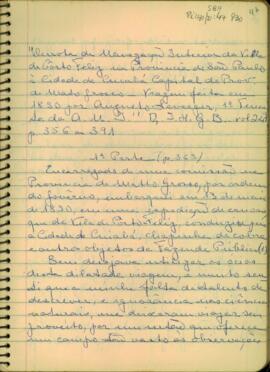 "Derrota da Navegação Interior da Villa
de Porto Feliz na Provincia de São Paulo
à Cidade de Cuiabá Capital da Prov.
de Mato Grosso - Viagem feita em
1830 por Augusto Leverger, 1º Tenen
te da A. N. I." R. I. H. G. B. vol
p. 356 a 391
1ª Parte (p. 363)
Encarregado de uma comissão na
Provincia de Matto Grosso, por ordem
do governo, embarquei em 13 de maio
de 1830, em uma expedição de canoas
na Villa de Porto Feliz, com
à Cidade de Cuiabá,
e outros objetos de Fazenda Publica (1)
Bem desejava utilizar os ocios
desta dilatada viagem, e muito sen
ti que a minha falta de talento de
descrever, e ignorancia nas ciências
naturais, me fizessem viajar sem
proveito, por um sertão que oferece
um campo tão vasto às observações